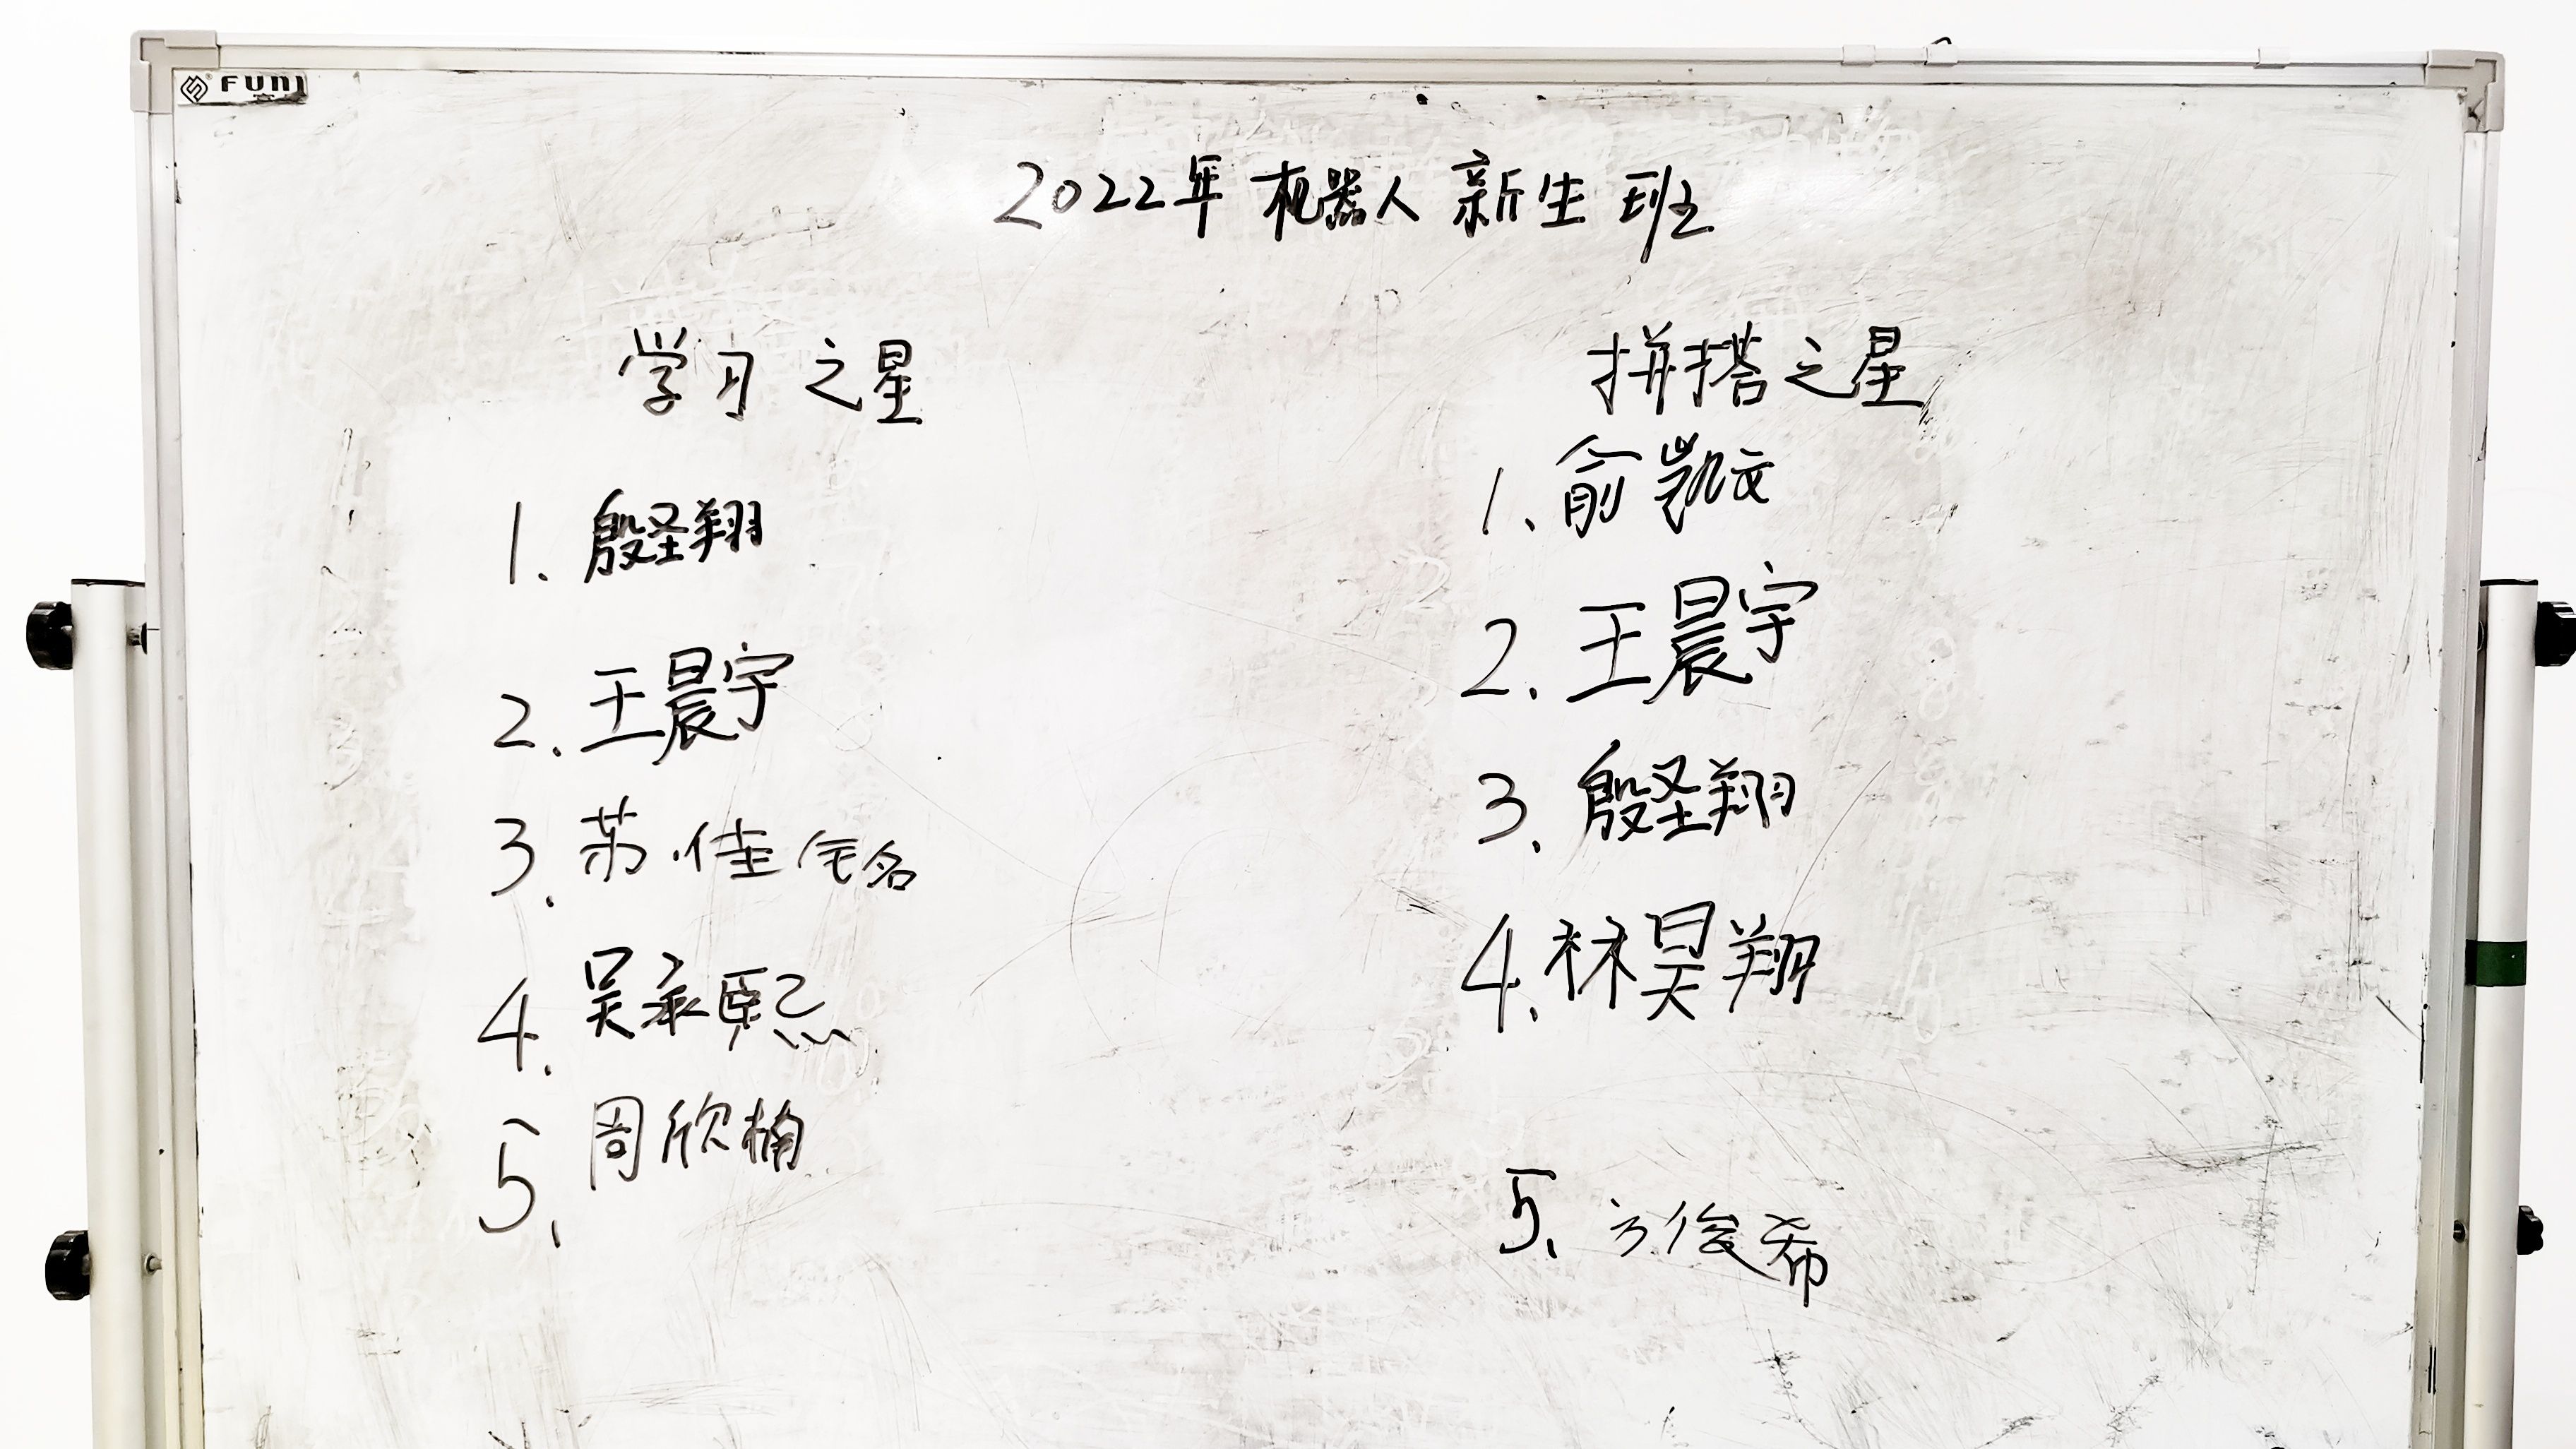 FUNI
2022年 机器人 新生班
学习之星
1. 殷圣翔
2. 王晨宇
3. 苏佳铭
4. 吴承熙
5. 周欣楠
拼搭之星
1. 俞凯文
2. 王晨宇
3. 殷圣翔
4. 林昊翔
5. 方俊希